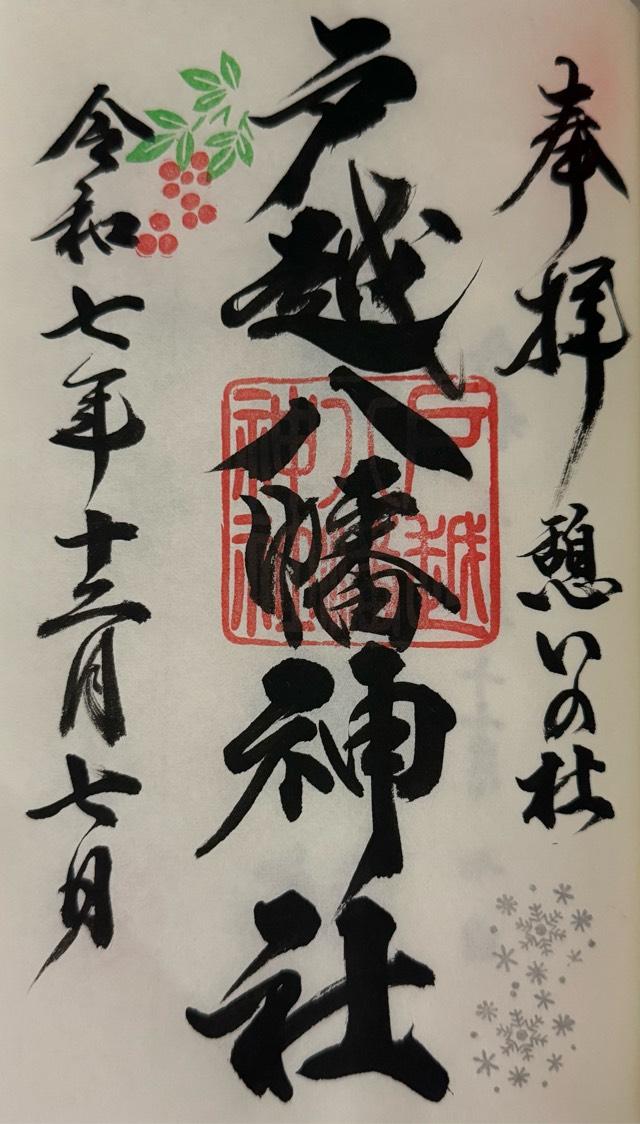 奉拝 憩いの杜
戸越八幡神社
戸越八幡神社
令和七年十二月七日